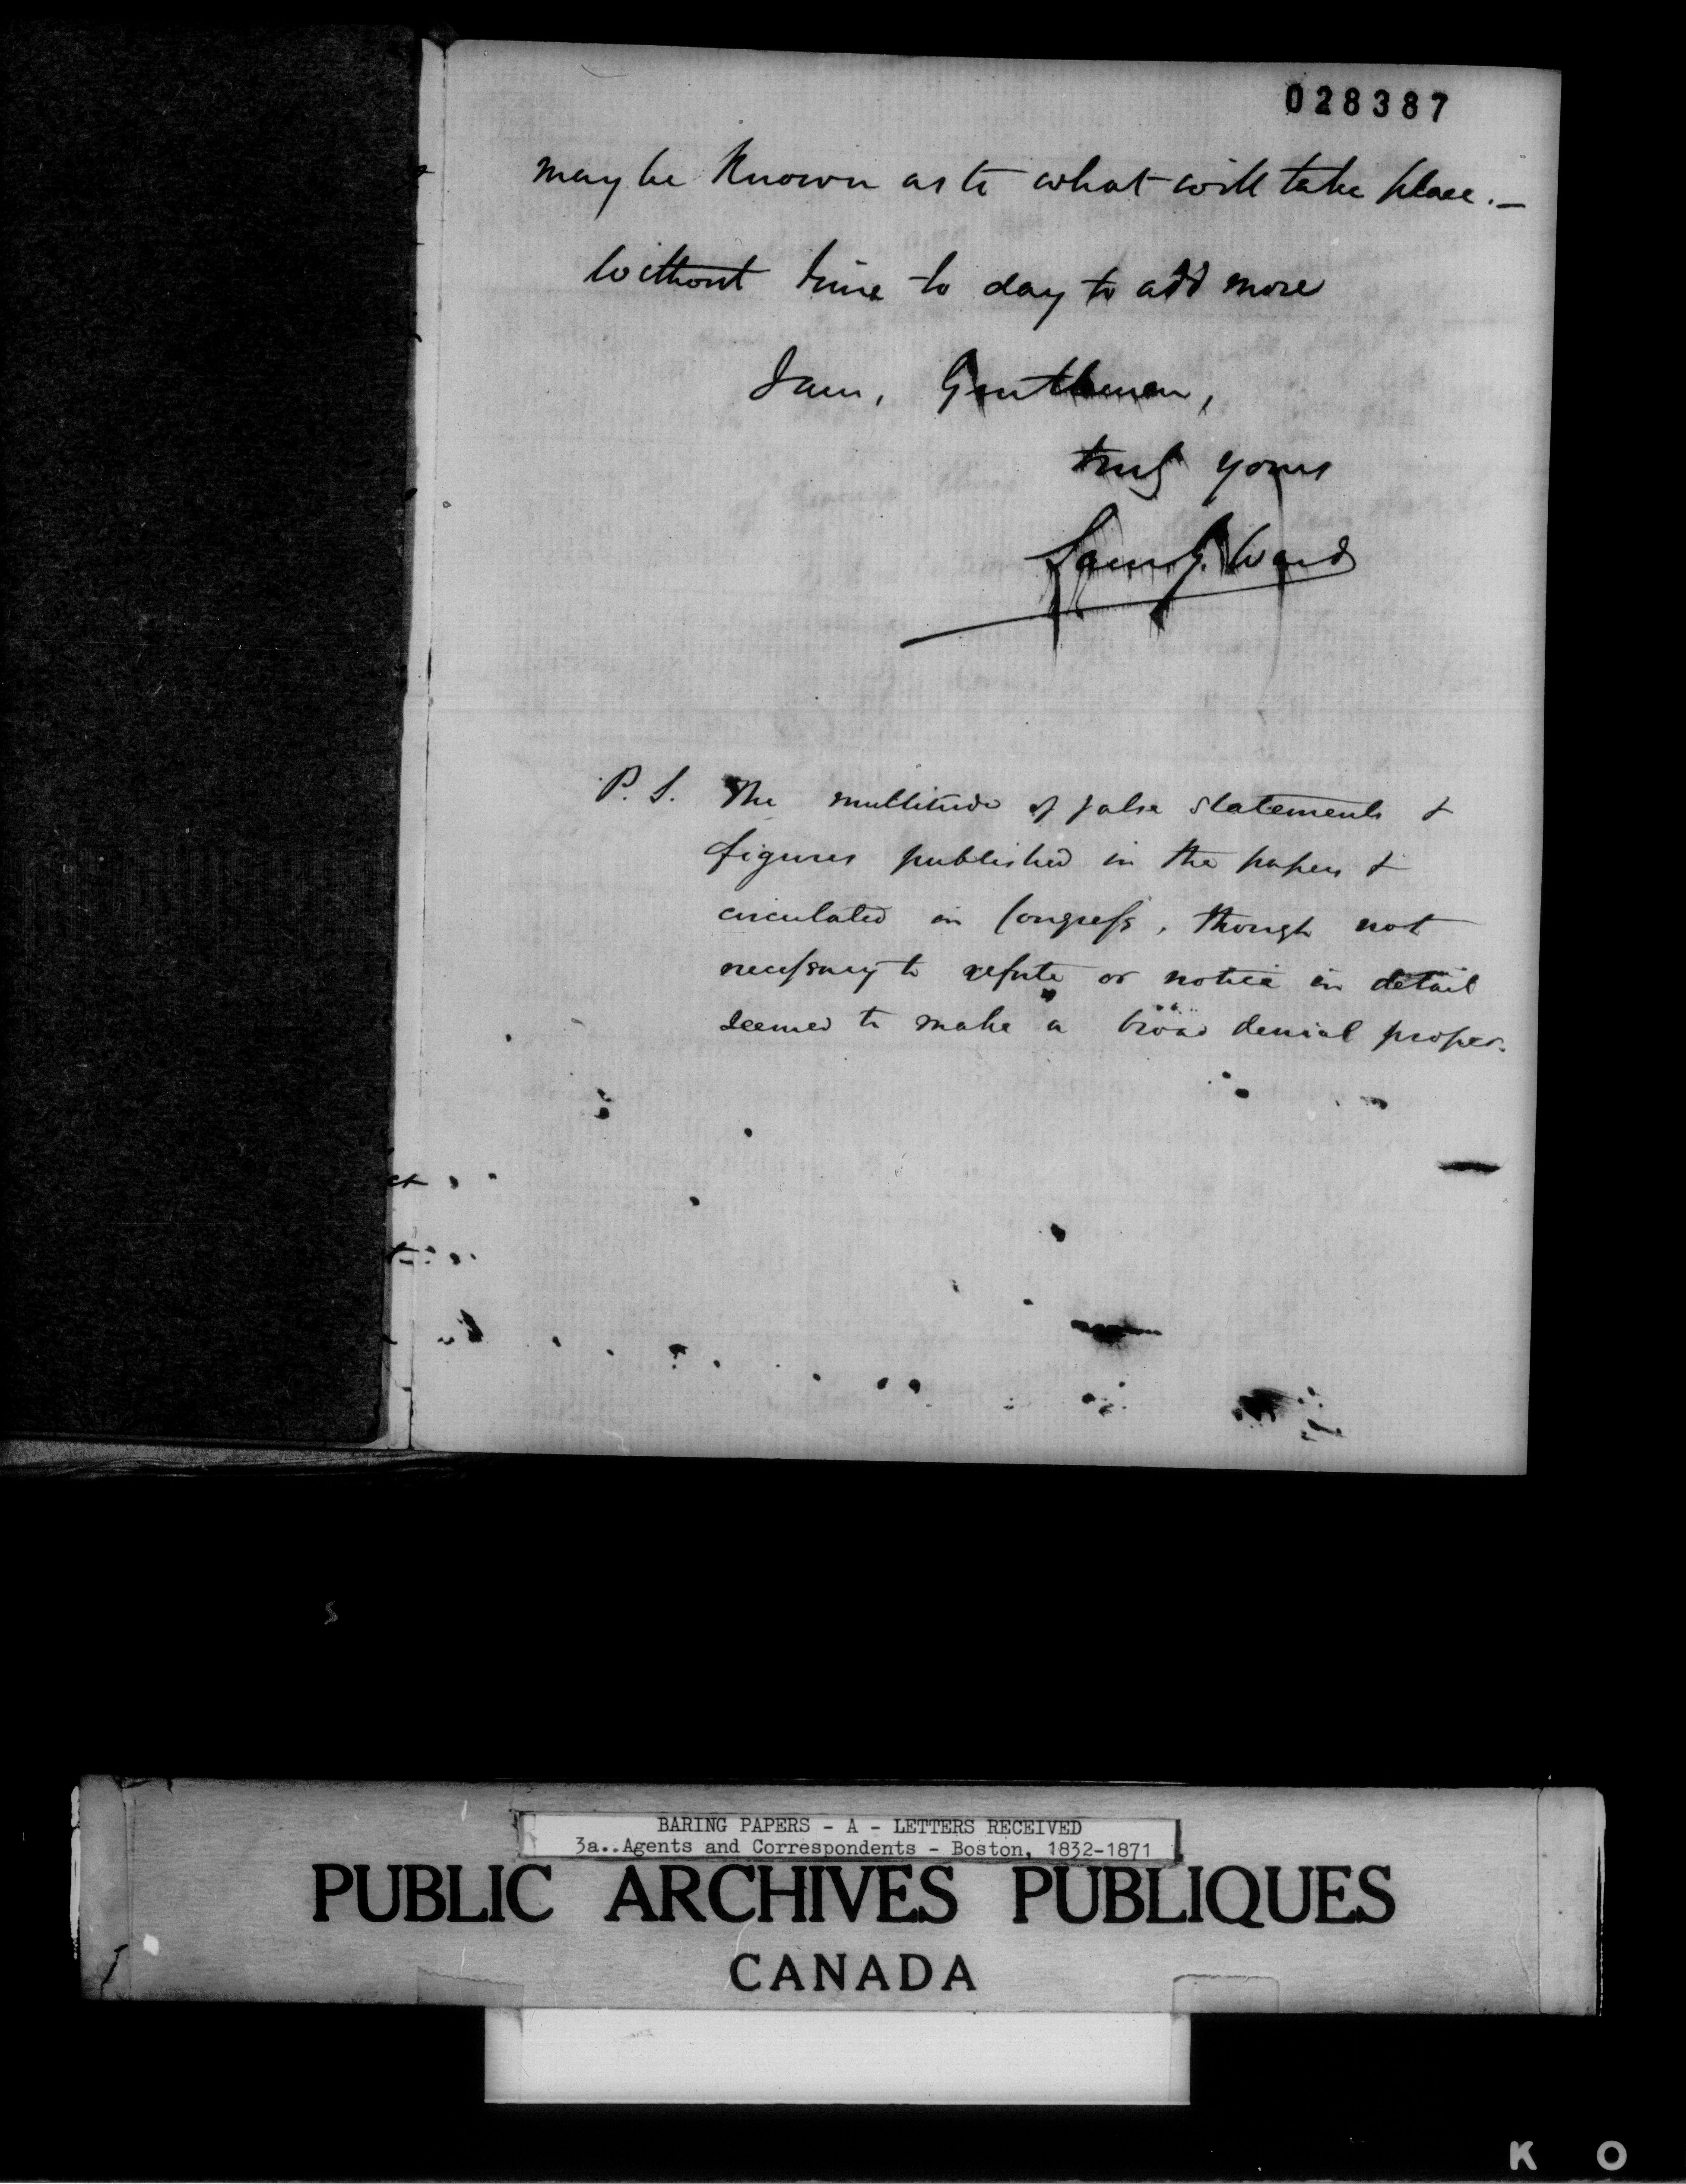 028387
may be known as to what will take place.—
Without time to day to add more
I am, Gentlemen,
truly yours
Sam G. Ward
P.S. The multitude of false statements &
figures published in the papers &
circulated in Congress, though not
necessary to refute or notice in detail
seemed to make a broad denial proper.
BARING PAPERS - A - LETTERS RECEIVED
3a..Agents and Correspondents - Boston, 1832-1871
PUBLIC ARCHIVES PUBLIQUES
CANADA
K O